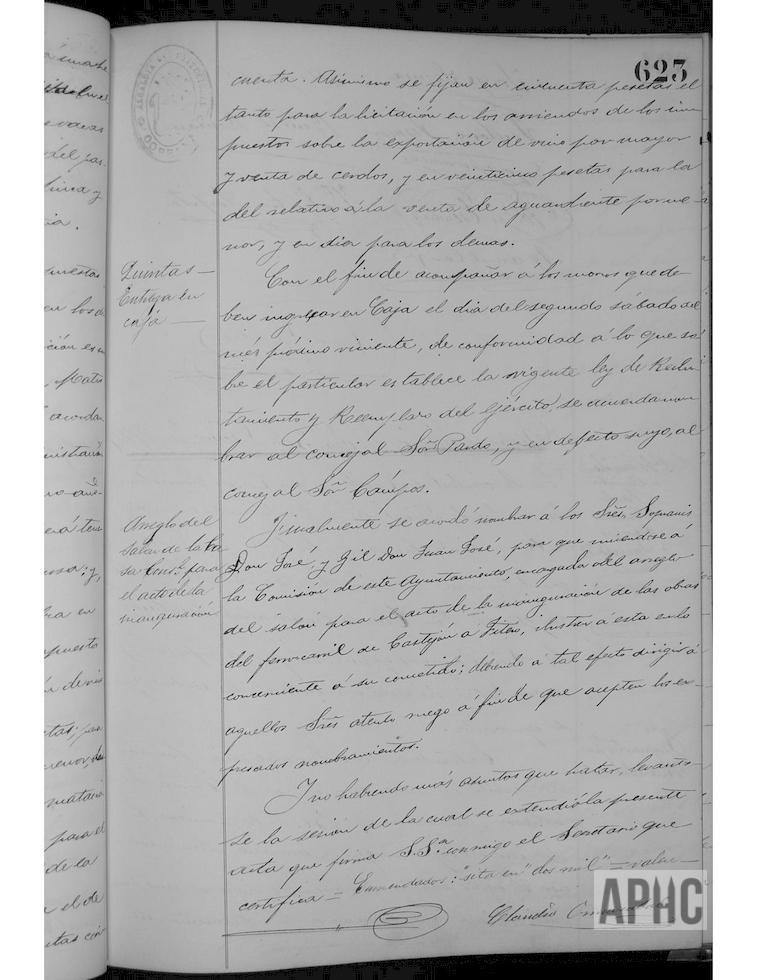 623
cuenta. Asimismo se fijan en cincuenta pesetas el
tanto para la licitación en los arriendos de los im-
puestos sobre la exportación de vino por mayor
y venta de cerdos, y en veinticinco pesetas para la
del relativo á la venta de aguardiente por me-
nor, y en diez para los demas.
Quintas —
Entrega en
caja —
Con el fin de acompañar á los mozos que de-
ben ingresar en Caja el dia del segundo sábado del
més próximo viniente, de conformidad á lo que so-
bre el particular establece la vigente ley de Reclu-
tamiento y Reemplazo del ejército, se acuerda nom-
brar al concejal Sor. Pardo, y en defecto suyo, al
concejal Sor. Cámpos.
Arreglo del
salon de la Ca-
sa Consl. para
el acto de la
inauguración
Igualmente se acordó nombrar á los Sres.
Don José, y Gil Don Juan José, para que uniendose á
la Comisión de este Ayuntamiento, encargada del arreglo
del salón para el acto de la inauguración de las obras
del ferrocarril de Castejón á Fitero, ilustren á esta en lo
concerniente á su cometido; debiendo á tal efecto dirigir á
aquellos Sres. atento ruego á fin de que acepten los ex-
presados nombramientos.
Y no habiendo más asuntos que tratar, levantó-
se la sesión de la cual se extendió la presente
acta que firma S.Sa. conmigo el Secretario que
certifica — Enmendados: "sita en" "dos mil" = valen —
Claudio
APHC